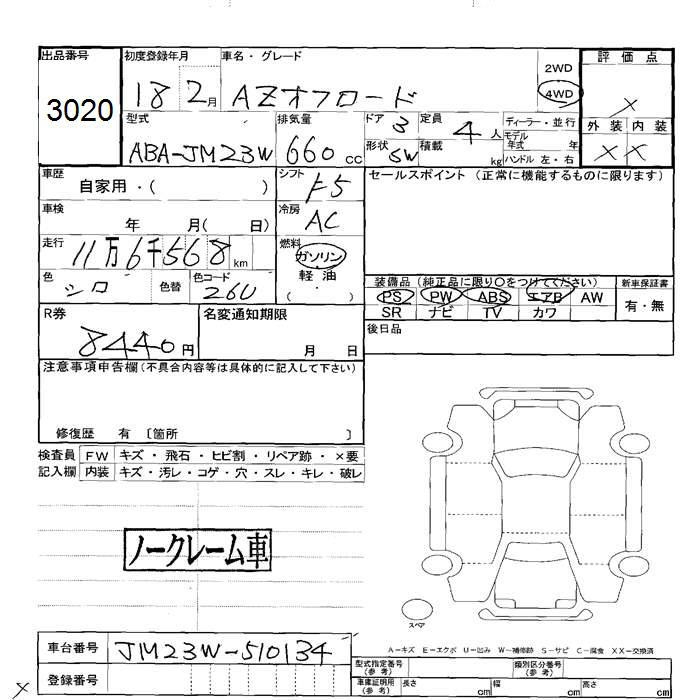 出品番号 3020
初度登録年月 18 2月
車名・グレード AZオフロード
2WD
4WD
評価点 X
外装 X 内装 X
型式 ABA-JM23W
排気量 660 cc
ドア 3
形状 SW
定員 4 人
積載 kg
ディーラー・並行
モデル年式 年
ハンドル 左・右
車歴 自家用・( )
シフト F5
セールスポイント (正常に機能するものに限ります)
車検 年 月( 日)
冷房 AC
走行 11万6千568km
燃料 ガソリン
軽・油
・( )
色 シロ 色替
色コード 26U
装備品 (純正品に限り〇をつけてください)
PS PW ABS エアB AW
SR ナビ TV カワ
新車保証書
有・無
R券 8440円
名変通知期限
月 日
後日品
注意事項申告欄(不具合内容等は具体的に記入して下さい)
修復歴 有 〔箇所 〕
検査員記入欄
FW キズ・飛石・ヒビ割・リペア跡・×要
内装 キズ・汚レ・コゲ・穴・スレ・キレ・破レ
ノークレーム車
スペア
A-キズ E-エクボ U-凹み W-補修跡 S-サビ C-腐食 XX-交換済
車台番号 JM23W-510134
登録番号
X
型式指定番号(参考)
類別区分番号(参考)
車庫証明用(参考) 長さ cm 幅 cm 高さ cm